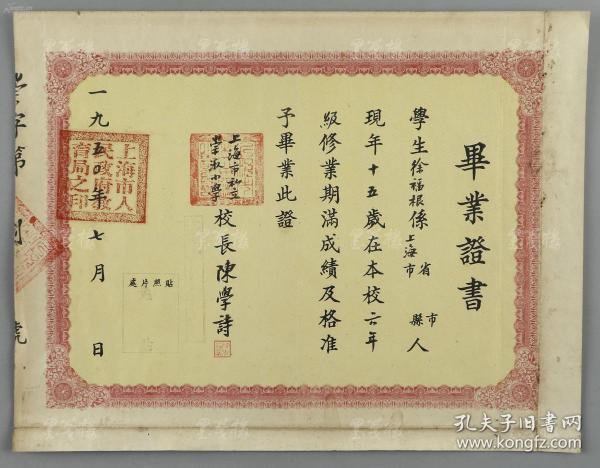 畢業證書
學生徐福根係上海市省市縣人
現年十五歲在本校六年
級修業期滿成績及格准
予畢業此證
上海市私立
小學
校長陳學詩
一九五〇年七月日
上海市人民政府教育局之印
貼照片處
字第
號
孔夫子旧書网
www.kongfz.com